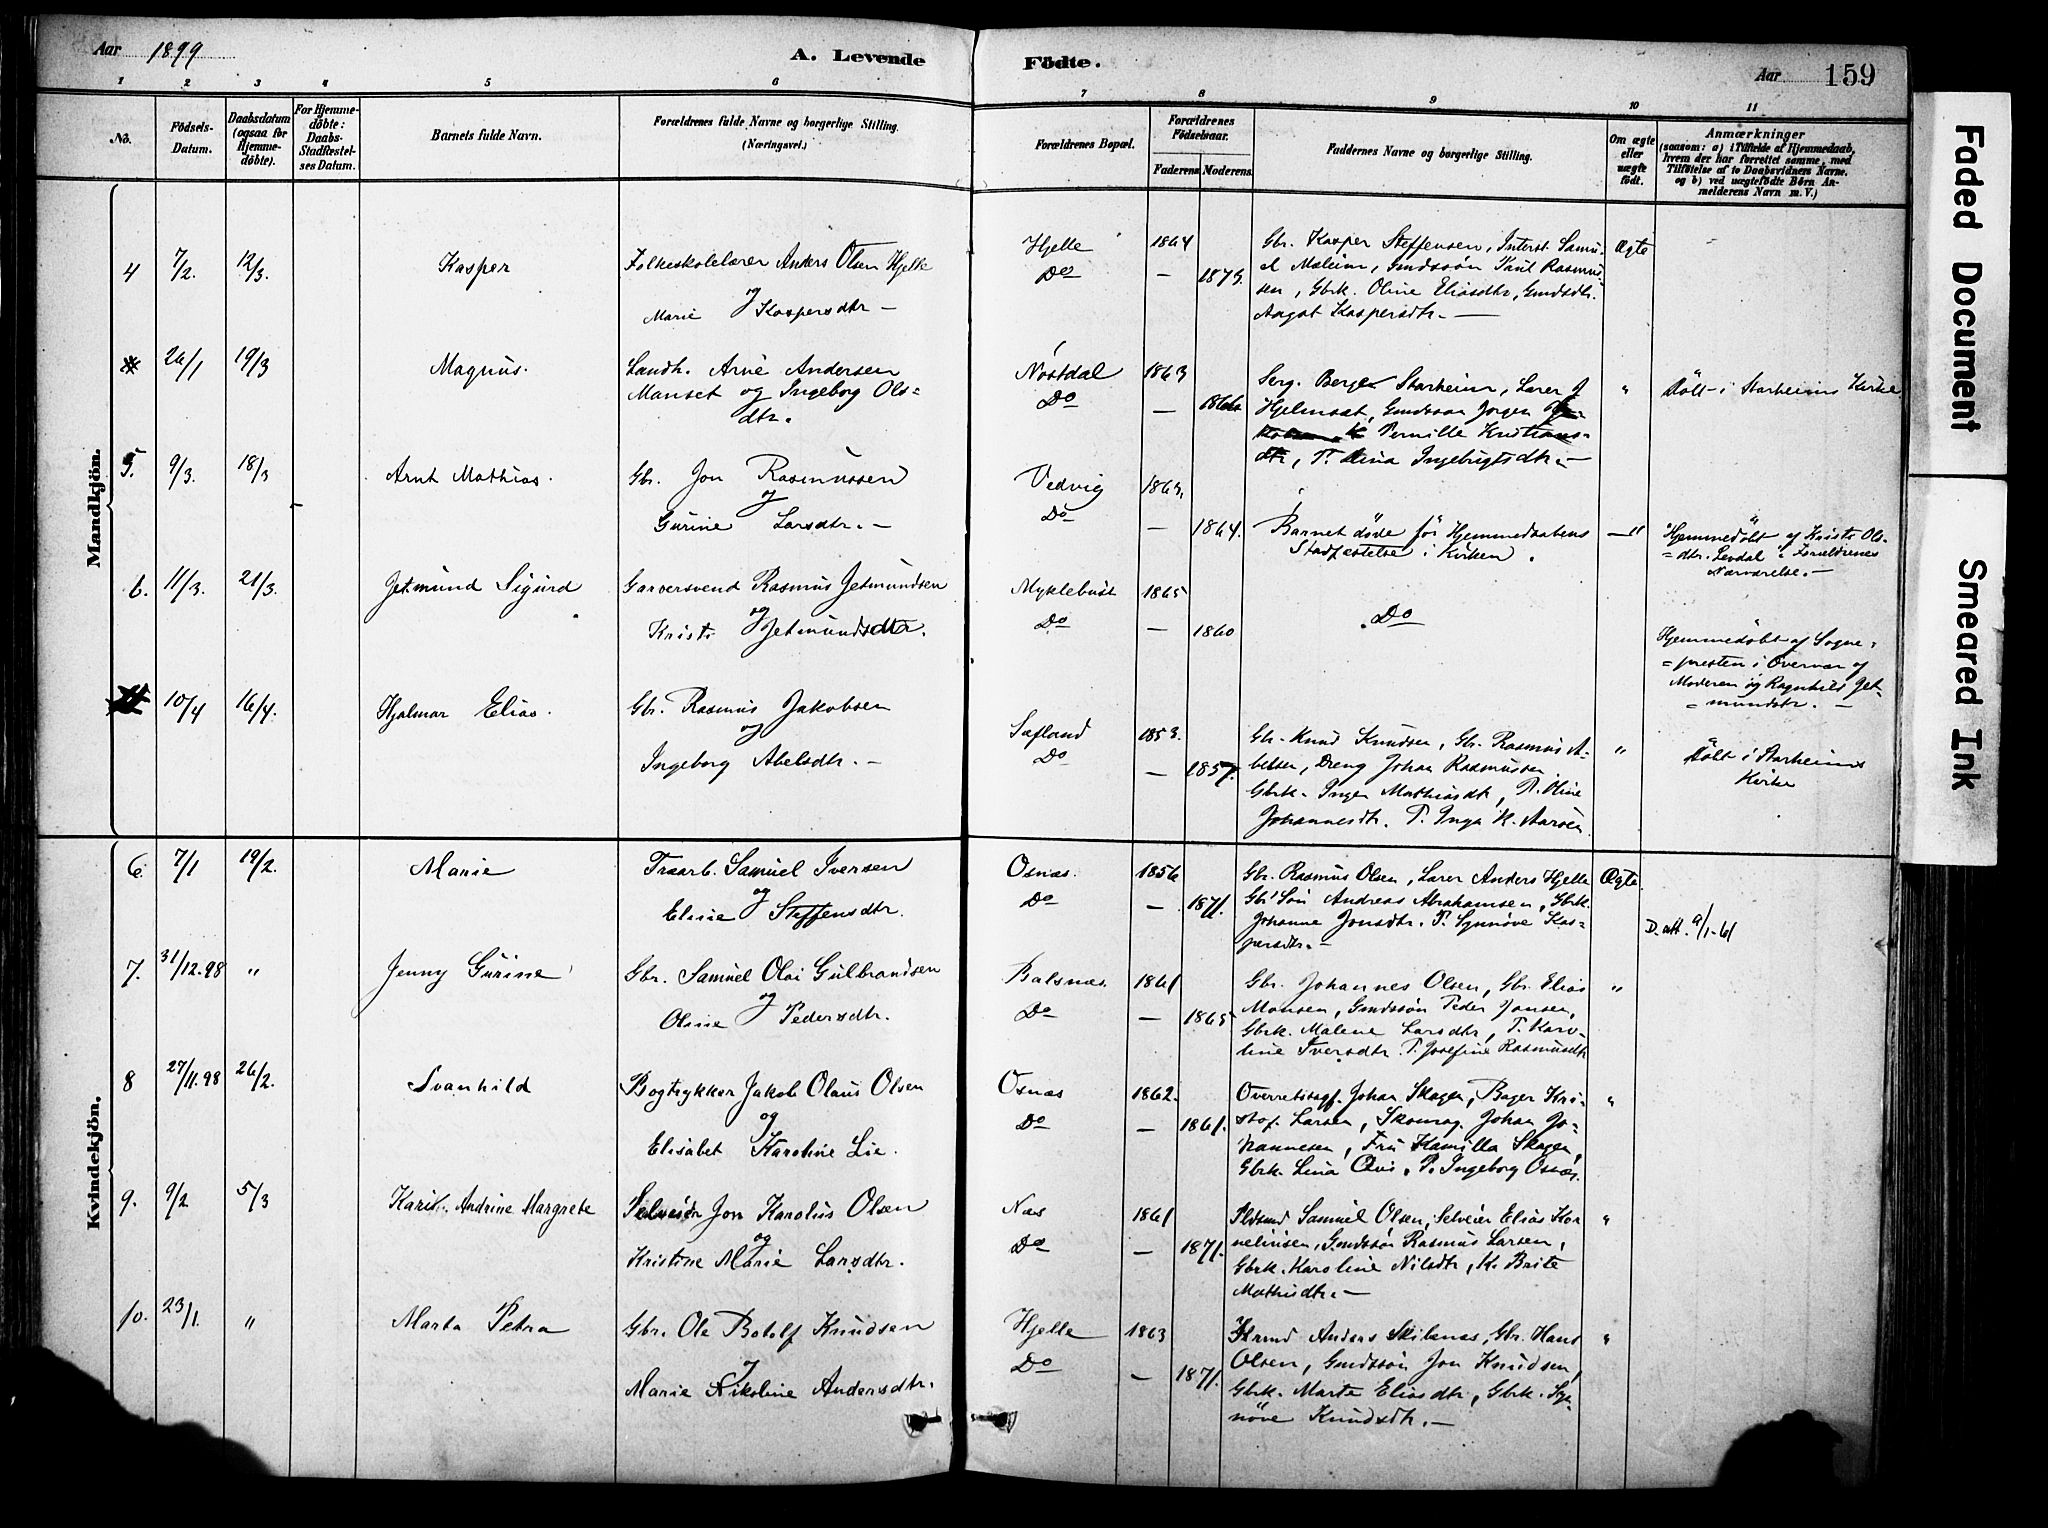 Aar 1899
A. Levende Födte.
Aar 159
1 2 3 4 5 6 7 8 9 10 11
No.
Födsels-Datum.
Daabsdatum (ogsaa för Hjemme-döbte).
For Hjemme-döbte: Daabs-Stadfæstel-ses Datum.
Barnets fulde Navn.
Forældrenes fulde Navne og borgerlige Stilling. (Næringsvei.)
Forældrenes Bopæl.
Forældrenes Födselsaar.
Faderens Moderens
Faddernes Navne og borgerlige Stilling.
Om ægte eller uægte födt.
Anmærkninger
(saasom: a) i Tilfælde af Hjemmedaab,
hvem der har forrettet samme, med
Tilföielse af to Daabsvidners Navne.
og b) ved uægtefödte Börn An-
melderens Navn m. V.)
Mandkjön.
4 7/2. 12/3. Kasper
Folkeskolelærer Anders Olsen Hjelle
og
Marie Kaspersdtr —
Hjelle 1864
Do — 1873.
Gbr. Kasper Steffensen, Interst. Samu-
el Maleim, Gmdssön Paul Rasmus
sen, Gbrk. Oline Eliasdtr, Gmdsdtr.
Aagot Kaspersdtr. —
Ægte
26/1 19/3 Magnus.
Landh. Arne Andersen
Manset og Ingeborg Ols=
dtr.
Nöstdal 1863
Do — 1866
Serg. Berge Starheim, Lærer J
Hjelmsæt, Gmdssøn Jørgen
Pernille Kristians=
dtr, P. Lina Ingebrigtsdtr. —
"
Döbt i Starheims Kirke
5. 9/3. 18/3 Arnt Mathias.
Gbr. Jon Rasmussen
og
Gurine Larsdtr. —
Vedvig 1863.
Do — 1864.
Barnet döde för Hjemmedaabens
Stadfæstelse i Kirken.
— "
Hjemmedöbt af Kristi Ols-
=dtr. Levdal i Forældrenes
Nærværelse. —
6. 11/3. 21/3. Jetmund Sigurd
Garversvend Rasmus Jetmundsen
og
Kristi Jetmundsdtr.
Myklebust 1865
Do — 1860
Do
Hjemmedöbt af Sogne=
=presten i Overvær af
Moderen og Ragnhild Jet-
=mundsdtr. —
10/4 16/4. Hjalmar Elias.
Gbr. Rasmus Jakobsen
og
Ingeborg Abelsdtr. —
Sæfland 1853.
Do — 1857.
Gbr. Knud Knudsen, Gbr. Rasmus A-
belsen, Dreng Johan Rasmussen
Gbrk. Inger Mathiasdtr, P. Oline
Johannesdtr. P. Inga K. Aarsen
"
Döbt i Starheims
Kirke
Kvindekjön.
6. 7/1 19/2. Marie
Træarb. Samuel Iversen
og
Eline Steffensdtr.
Osnæs. 1856
Do — 1871.
Gbr. Rasmus Olsen, Lærer Anders Hjelle
Gbr Sön Andreas Abrahamsen, Gbrk.
Johanne Jonsdtr. P. Synnöve Kas-
persdtr. —
Ægte.
D. att. 9/1-61
7. 31/12.98 " Jenny Gurine
Gbr. Samuel Olai Gulbrandsen
og
Oline Pedersdtr.
Balsnæs 1861
Do — 1865
Gbr. Johannes Olsen, Gbr. Elias
Monsen, Gmdssön Peder Jonsen,
Gbrk. Malene Larsdtr, P. Karo-
line Iversdtr. P. Josefine Rasmusdtr
"
8 27/11.98 26/2. Svanhild
Bogtrykker Jakob Olaus Olsen
og
Elisabet Karoline Lie.
Osnæs 1862.
Do — 1861.
Overretssagf. Johan Skagen, Bager Kri-
stof. Larsen, Skomag. Johan Jo-
hannesen, Fru Kamilla Skagen,
Gbrk. Lina Övis, P. Ingeborg Osnæs.
"
9. 9/2 5/3 Kari Andrine Margrete
Selveier Jon Karolius Olsen
og
Kristine Marie Larsdtr.
Næs 1861
Do — 1871.
Samuel Olsen, Selveier Elias Kor
neliusen, Gmdssön Rasmus Larsen,
Gbrk. Karoline Nilsdtr, K. Brite
Mathisdtr. —
"
10. 23/1. " Marta Petra
Gbr. Ole Botolf Knudsen
og
Marie Nikoline Andersdtr.
Hjelle 1863
Do — 1871.
Anders Skibenæs, Gbr. Hans
Olsen, Gmdssön Jon Knudsen,
Gbrk. Marte Eliasdtr, Gbrk. Syn-
növe Knudsdtr. —
"
Faded Document
Smeared Ink